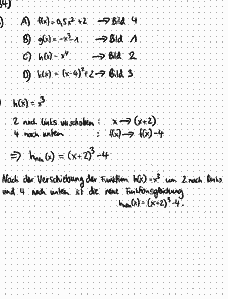 A) f(x) = 0,5x² + 2 → Bild 4
B) g(x) = -x³-1 → Bild 1
C) h(x) = x⁴ → Bild 2
D) k(x) = (x-4)²+2 → Bild 3
h(x) = x³
2 nach links verschoben: x → (x+2)
4 nach unten : f(x) → f(x)-4
⇒ h_neu(x) = (x+2)³ - 4
Nach der Verschiebung der Funktion h(x) = x³ um 2 nach links
und 4 nach unten ist die neue Funktionsgleichung
h_neu(x) = (x+2)³-4.